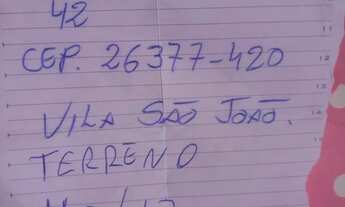 42
CEP. 26377-420
VILA SÃO JOÃO.
TERRENO